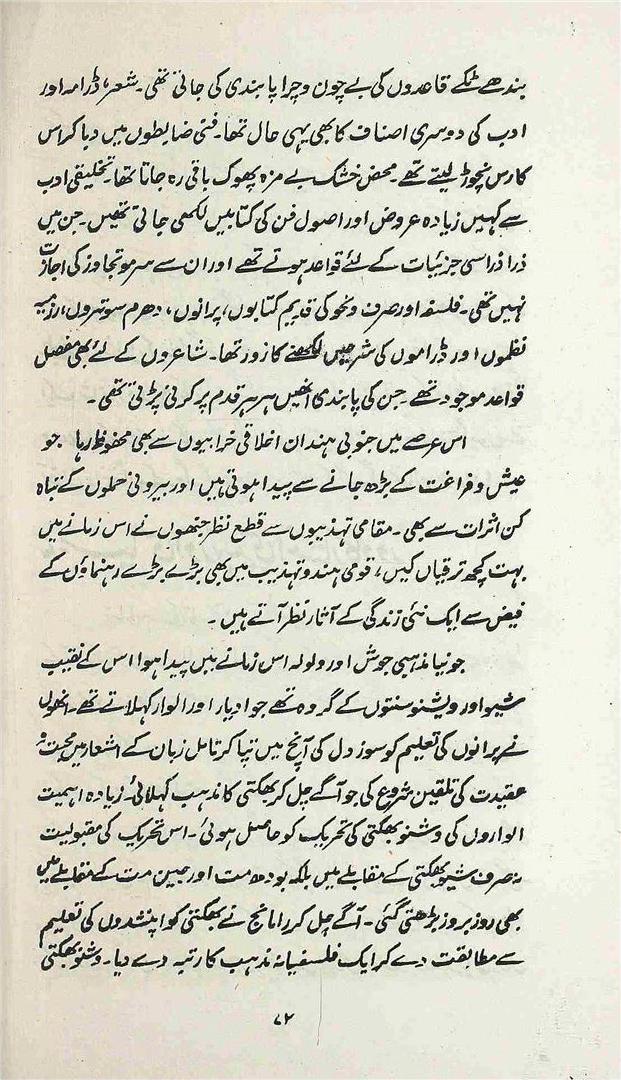 بندھے ٹکے قاعدوں کی بے چون و چرا پابندی کی جاتی تھی۔ شعر، ڈرامہ اور
ادب کی دوسری اصناف کا بھی یہی حال تھا۔ فنی ضابطوں میں دبا کر اس
کا رس نچوڑ لیتے تھے۔ محض خشک بے مزہ پھوک باقی رہ جاتا تھا۔ تخلیقی ادب
سے کہیں زیادہ عروض اور اصول فن کی کتابیں لکھی جاتی تھیں۔ جن میں
ذرا ذرا سی جزئیات کے لئے قواعد ہوتے تھے اور ان سے سرمو تجاوز کی اجازت
نہیں تھی۔ فلسفہ اور صرف و نحو کی قدیم کتابوں، پرانوں، دھرم سوتروں، رزمیہ
نظموں اور ڈراموں کی شرحیں لکھنے کا زور تھا۔ شاعروں کے لئے بھی مفصل
قواعد موجود تھے۔ جن کی پابندی انھیں ہر ہر قدم پر کرنی پڑتی تھی۔
اس عرصے میں جنوبی ہند ان اخلاقی خرابیوں سے بھی محفوظ رہا جو
عیش و فراغت کے بڑھ جانے سے پیدا ہوتی ہیں اور بیرونی حملوں کے تباہ
کن اثرات سے بھی۔ مقامی تہذیبوں سے قطع نظر جنھوں نے اس زمانے میں
بہت کچھ ترقیاں کیں، قومی ہندو تہذیب میں بھی بڑے بڑے رہنماؤں کے
فیض سے ایک نئی زندگی کے آثار نظر آتے ہیں۔
جو نیا مذہبی جوش اور ولولہ اس زمانے میں پیدا ہوا اس کے نقیب
شیو اور ویشنو سنتوں کے گروہ تھے جو ادیار اور الوار کہلاتے تھے۔ انھوں
نے پرانوں کی تعلیم کو سوز دل کی آنچ میں تپا کر تامل زبان کے اشعار میں محبت و
عقیدت کی تلقین شروع کی جو آگے چل کر بھکتی کا مذہب کہلائی۔ زیادہ اہمیت
الواروں کی وشنو بھگتی کی تحریک کو حاصل ہوئی۔ اس تحریک کی مقبولیت
نہ صرف شیو بھکتی کے مقابلے میں بلکہ بودھ مت اور جین مت کے مقابلے میں
بھی روز بروز بڑھتی گئی۔ آگے چل کر رامانج نے بھکتی کو اپنشدوں کی تعلیم
سے مطابقت دے کر ایک فلسفیانہ مذہب کا رتبہ دے دیا۔ وشنو بھکتی
۷۲